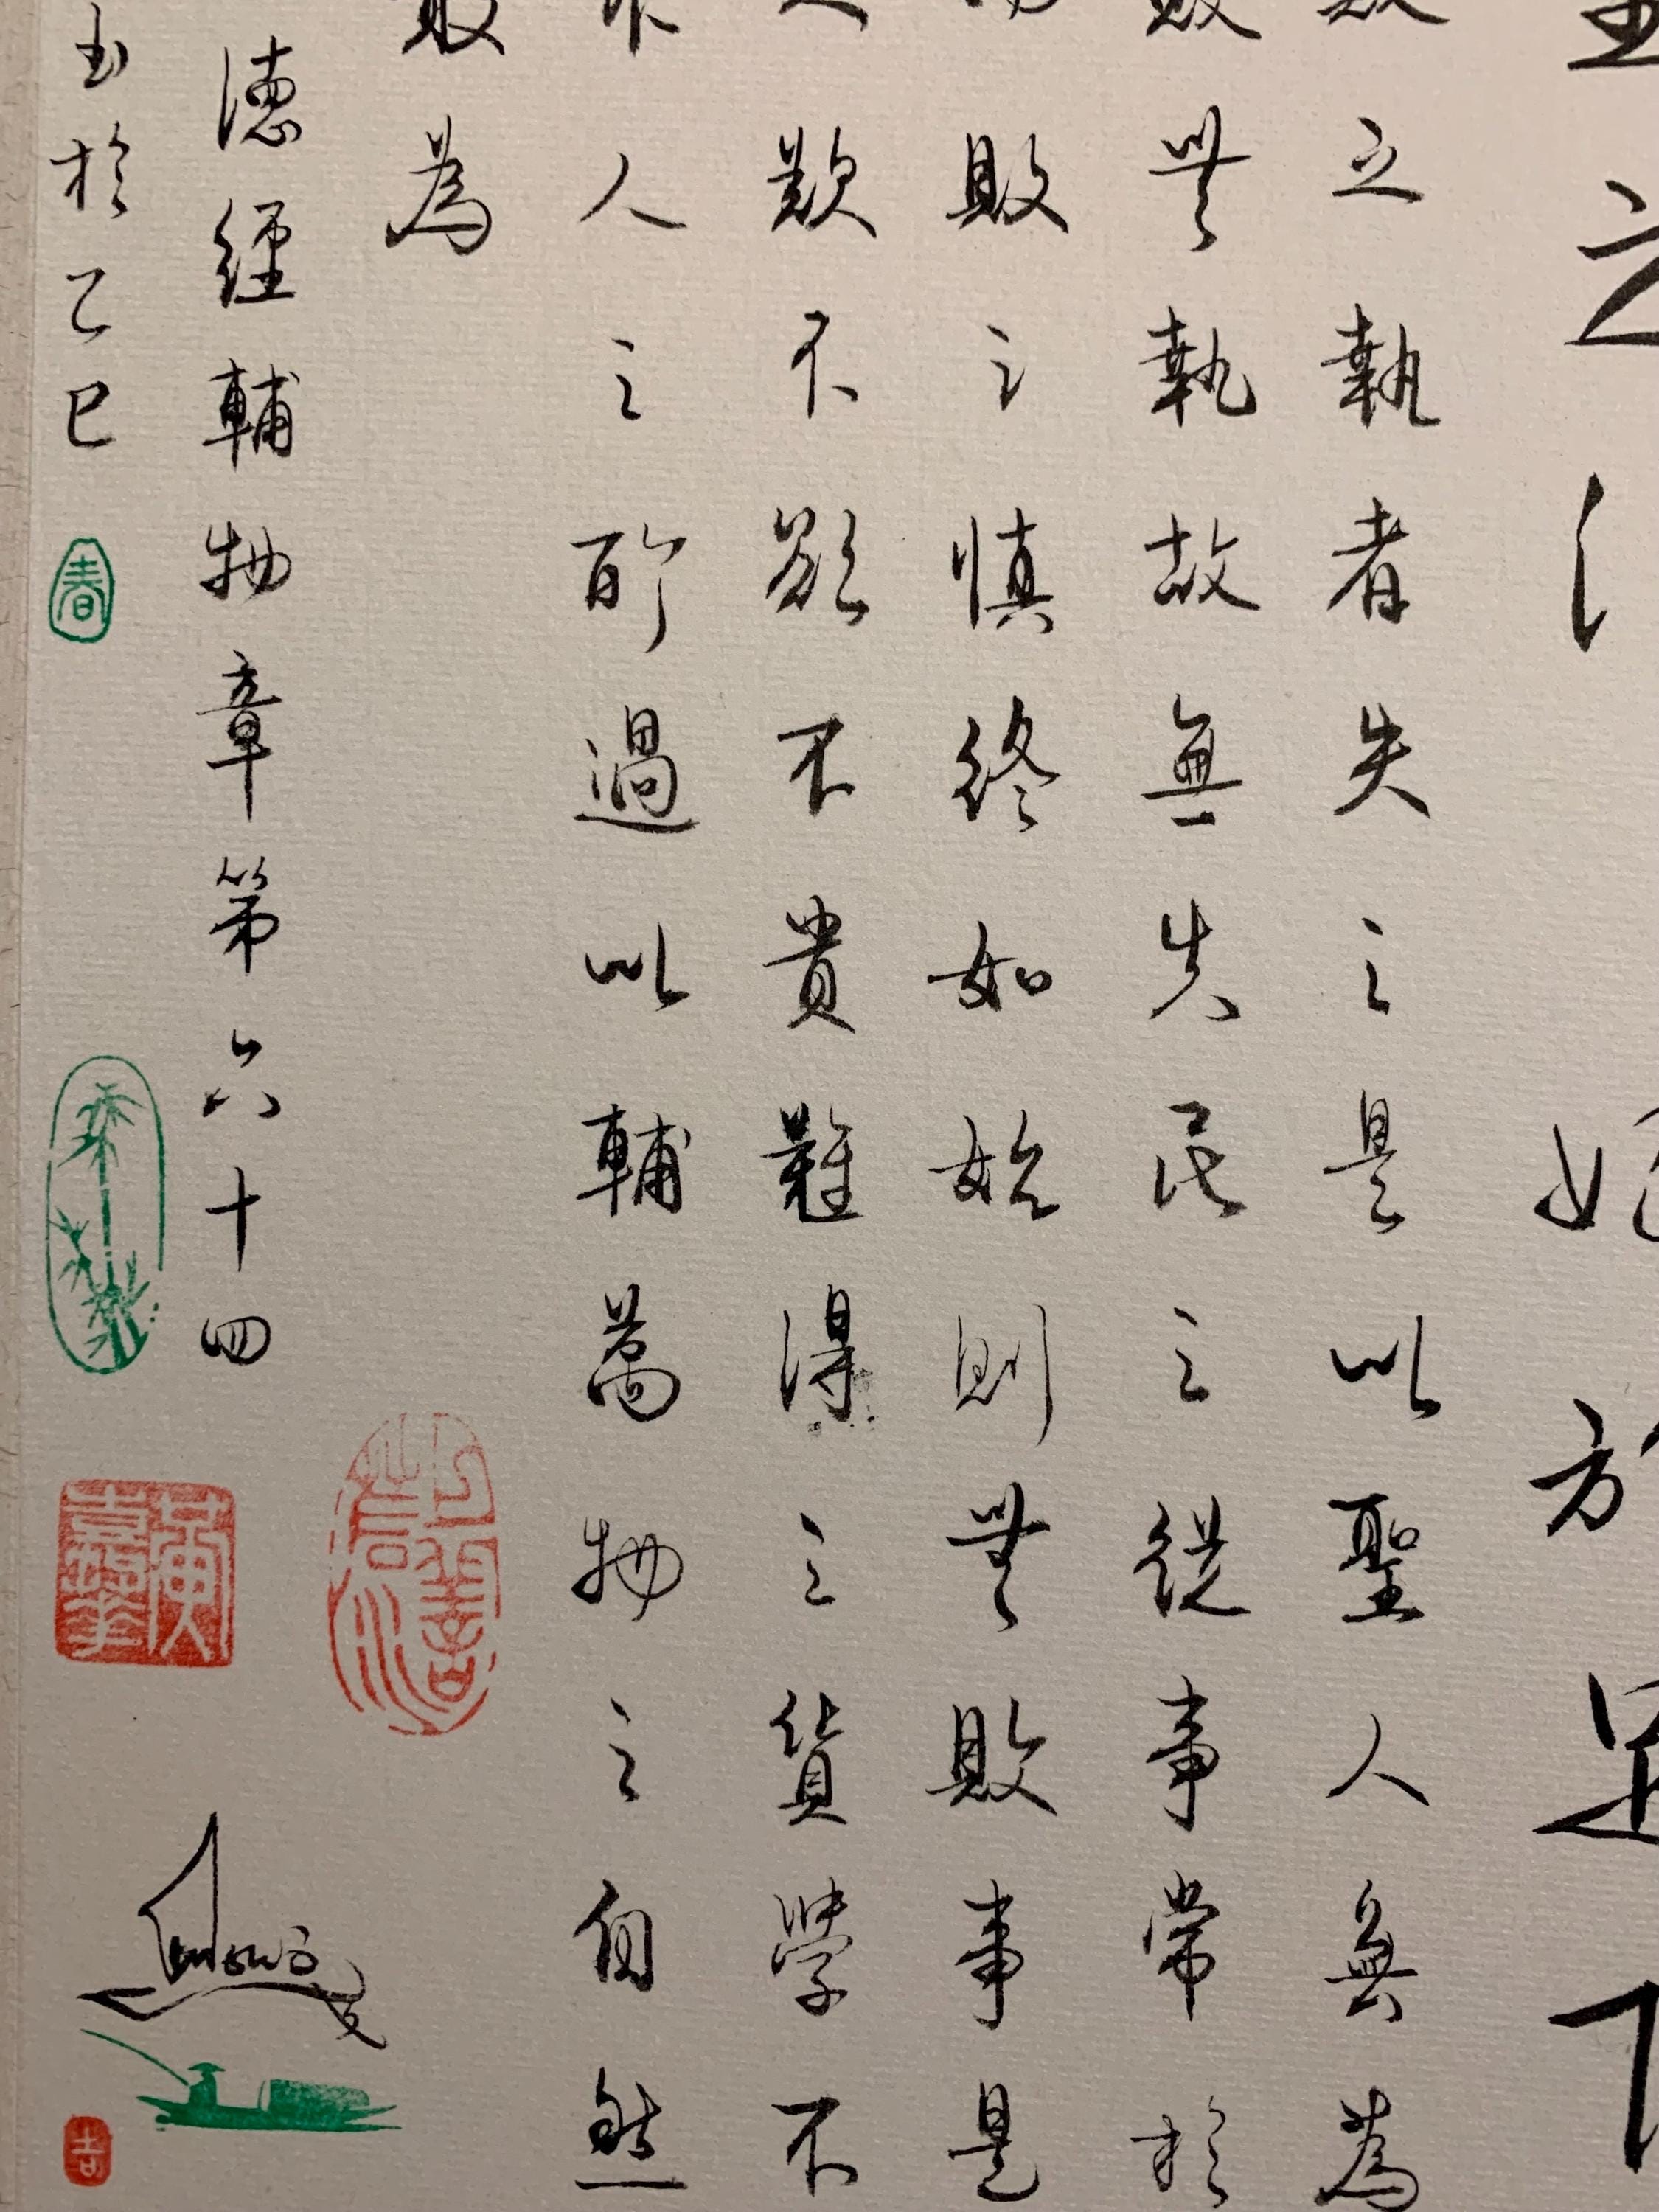 之行始於足下
敗之執者失之是以聖人無為
敗無執故無失民之從事常於
敗之慎終如始則無敗事是
欲不欲不貴難得之貨學不
人之所過以輔萬物之自然
敢為
德經輔物章第六十四
書於乙巳
春
吉